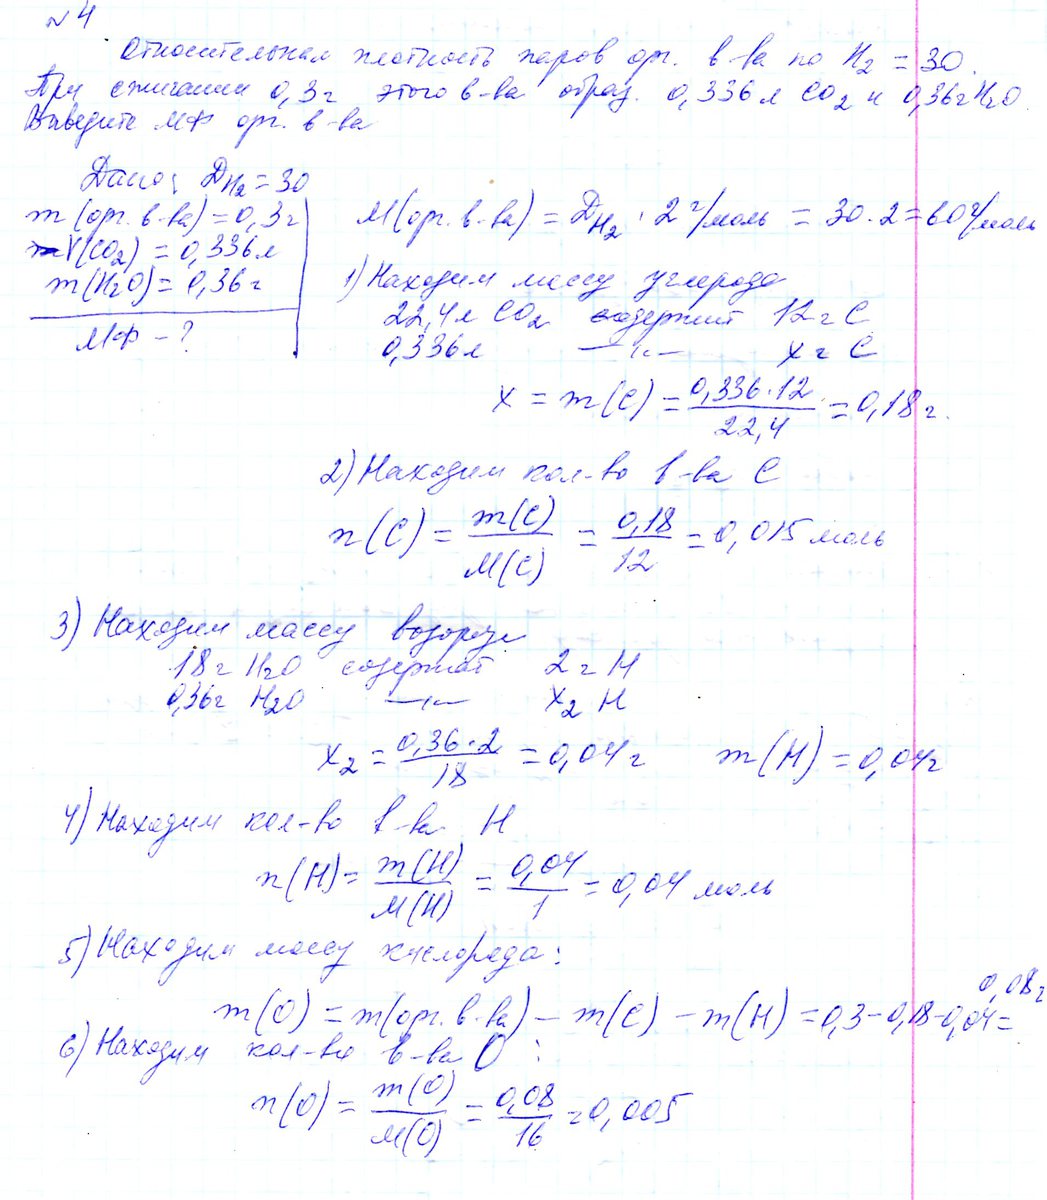 №4
Относительная плотность паров орг. в-ва по H₂ = 30.
При сжигании 0,3 г этого в-ва образ. 0,336 л CO₂ и 0,36 г H₂O.
Выведите МФ орг. в-ва
Дано: D_H₂ = 30
m (орг. в-ва) = 0,3 г
V(CO₂) = 0,336 л
m(H₂O) = 0,36 г
МФ - ?
M(орг. в-ва) = D_H₂ · 2 г/моль = 30·2 = 60 г/моль
1) Находим массу углерода
22,4 л CO₂ содержит 12 г C
0,336 л —"— x г C
x = m(C) = 0,336·12 / 22,4 = 0,18 г.
2) Находим кол-во в-ва C
n(C) = m(C) / M(C) = 0,18 / 12 = 0,015 моль
3) Находим массу водорода
18 г H₂O содержит 2 г H
0,36 г H₂O —"— x₂ H
x₂ = 0,36·2 / 18 = 0,04 г m(H) = 0,04 г
4) Находим кол-во в-ва H
n(H) = m(H) / M(H) = 0,04 / 1 = 0,04 моль
5) Находим массу кислорода:
m(O) = m(орг. в-ва) – m(C) – m(H) = 0,3 – 0,18 – 0,04 = 0,08 г
6) Находим кол-во в-ва O:
n(O) = m(O) / M(O) = 0,08 / 16 = 0,005